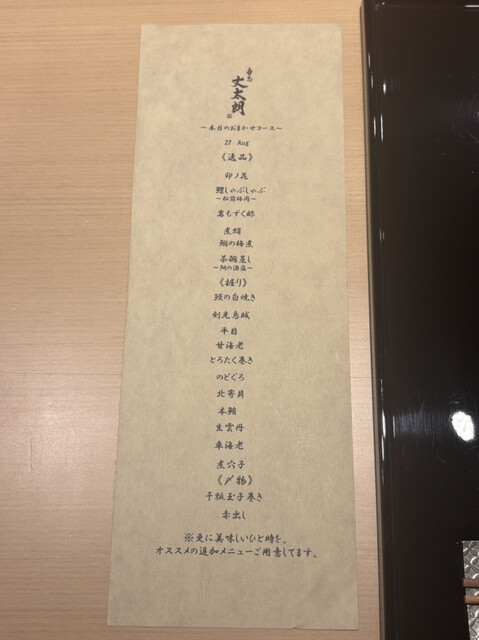 丈太朗
～本日のおまかせコース～
27 Aug
《逸品》
卯ノ花
鱧しゃぶしゃぶ
～松前梅肉～
岩もずく酢
煮蛸
鰯の梅煮
茶碗蒸し
《握り》
鰻の白焼き
剣先烏賊
平目
甘海老
とろたく巻き
のどぐろ
北寄貝
本鮪
生雲丹
車海老
煮穴子
《〆物》
干瓢玉子巻き
赤出し
※更に美味しいひと時を。
オススメの追加メニューご用意してます。